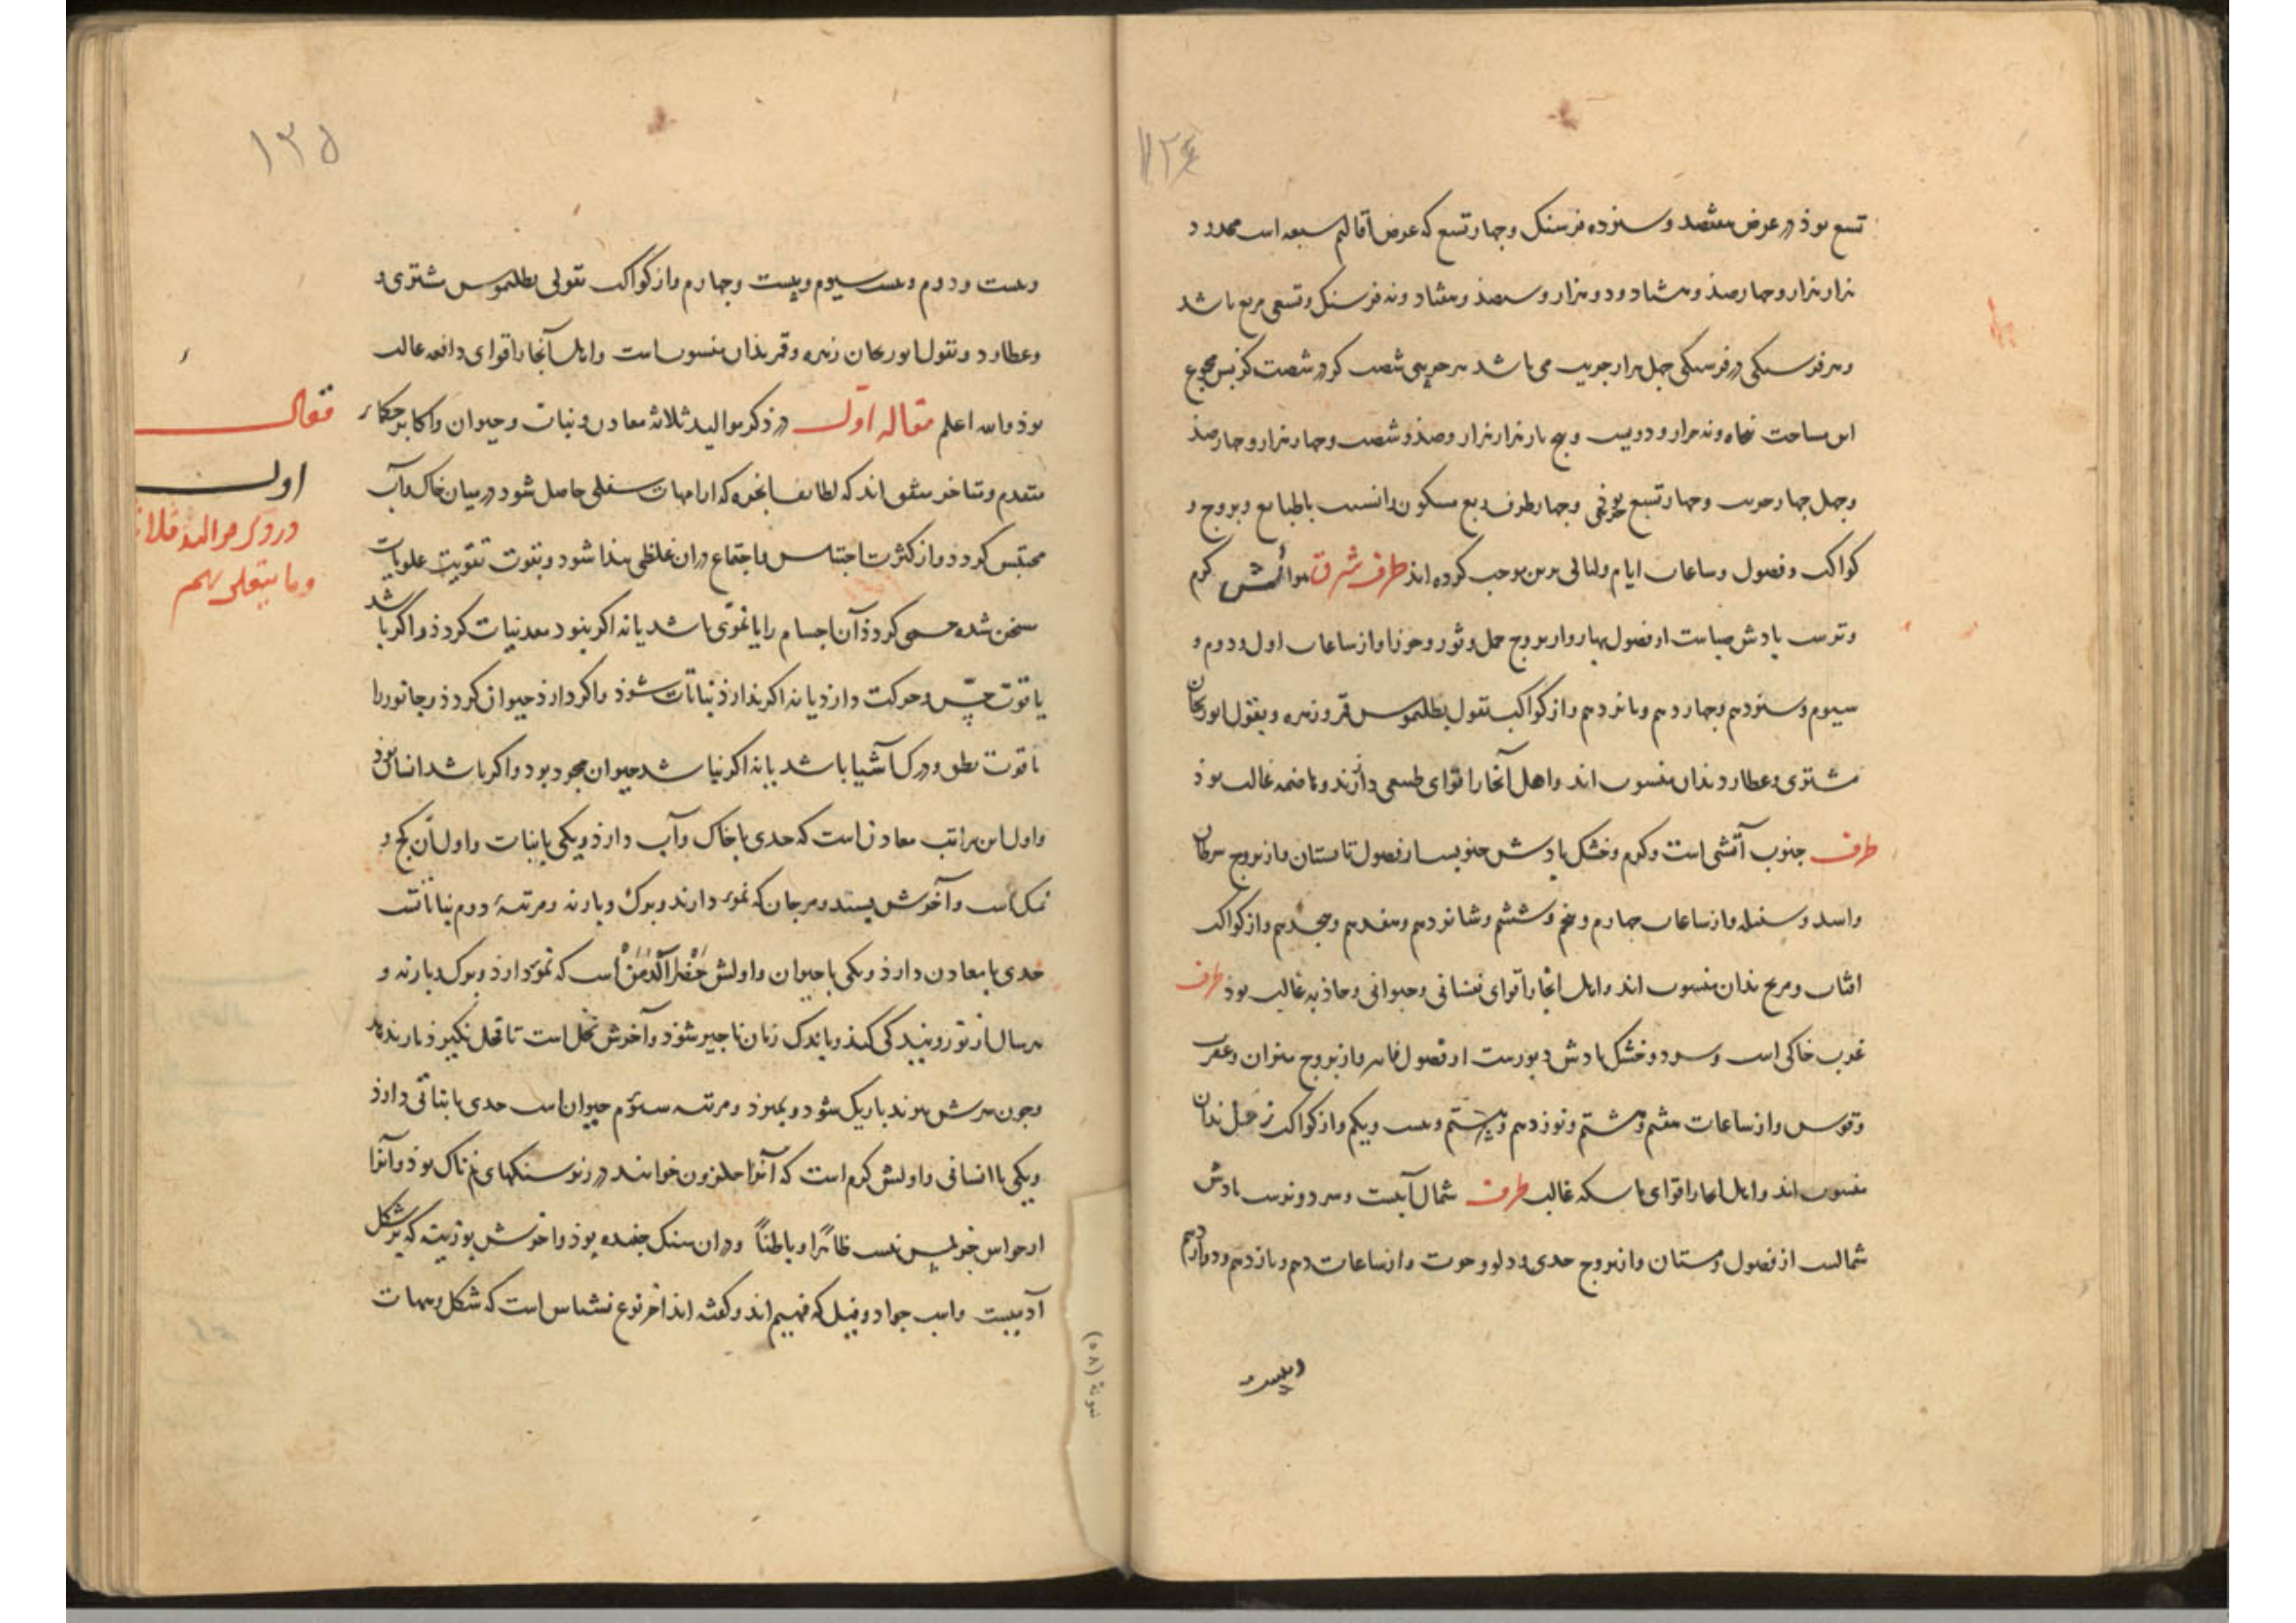 ۱۲۴
تسع بوذ در عرض هفتصد و سنزده فرسنک و جهار تسع که عرض اقالیم سبعه است محدود
هزار هزار و جهارصذ و هشتاد و دو هزار و سیصذ و هفتاد و نه فرسنک و تسعی مربع باشد
و هر فرسنکی در فرسنکی جهل هزار جریب می باشد هر جریبی شصت کز در شصت کز بس مجموع
این مساحت بنجاه و نه هزار و دویست و بنج بار هزار هزار و صذ و شصت و جهار هزار و جهارصذ
و جهل جهار جریب و جهار تسع جریبی و جهار طرف ربع مسکون را نسبت با طبایع و بروج و
کواکب و فصول و ساعات ایام و لیالی برین موجب کرده اند طرف شرق هوائش کرم
و ترست بادش صباست از فصول بهار و از بروج حمل و ثور و جوزا و از ساعات اول و دوم و
سیوم و سنزدهم و جهاردهم و بانزدهم و از کواکب بقول بطلمیوس قمر و زهره و بقول ابوریحان
مشتری و عطارد بدان منسوب اند و اهل آنجا را قوای طبیعی دارند و هاضمه غالب بوذ
طرف جنوب آتشی است و کرم و خشک بادش جنوبیست از فصول تابستان و از بروج سرطان
و اسد و سنبله و از ساعات جهارم و بنجم و ششم و شانزدهم و هفدهم و هجدهم و از کواکب
افتاب و مریخ بدان منسوب اند و اهل انجا را قوای نفسانی و حیوانی و جاذبه غالب بوذ طرف
غرب خاکی است و سرد و خشک بادش دبورست از فصول خزان و از بروج میزان و عقرب
و قوس و از ساعات هفتم و هشتم و نوزدهم و بیستم و بیست و یکم و از کواکب زحل بدان
منسوب اند و اهل انجا را قوای ماسکه غالب طرف شمال آبیست و سرد و ترست بادش
شمالیست از فصول زمستان و از بروج جدی و دلو و حوت و از ساعات دهم و یازدهم و دوازدهم
و بیست
۱۳۵
و بیست و دوم و بیست سیوم و بیست و جهارم و از کواکب بقولی بطلمیوس مشتری و
وعطارد و بقول ابوریحان زهره و قمر بذان منسوب است و اهل آنجا را قوای دافعه غالب
بوذ و الله اعلم مقاله اول در ذکر موالید ثلاثه معادن و نبات و حیوان و اکابر حکماء
متقدم و متاخر متفق اند که لطایف ابخره که از امهات سفلی حاصل شود در میان خاک و آب
محتبس کردد و از کثرت احتباس و اجتماع دران غلظی پیدا شود و بقوت تقویت علویات
سخن شده جسمی کردذ آن اجسام را یا نموّی باشد یا نه اکر بنود معدنیات کردذ و اکر باشد
یا قوت حسّ و حرکت دارذ یا نه اکر ندارذ نباتات شوذ و اکر دارذ حیوان کردذ و جانور را
با قوت نطق و درک آشیا باشد یا نه اکر نباشد حیوان مجرد بود و اکر باشد انسان بوذ
و اول این مراتب معادن است که حدی با خاک و آب دارذ و یکی با نبات و اول آن کج و
نمک است و آخرش بسد و مرجان که نموّ دارند و برک و بار نه و مرتبهٔ دوم نباتاتست
حدی با معادن دارذ و یکی با حیوان و اولش خَضْراءُ الدِّمَنْ است که نموّ دارذ و برک و بار نه و
هر سال از نو رویندکی کند و باندک زمان ناچیز شوذ و آخرش نخل است تا فحل نکیرذ بار ندهد
و جون سرش ببرند باریک شود و بمیرذ و مرتبه سیوّم حیوان است حدی با نباتی دارذ
و یکی با انسانی و اولش کرم است که آنرا حلزون خوانند در زیر سنکهای نمناک بوذ و آنرا
از حواس جز لمس نیست ظاهراً و باطناً و در ان سنک جفسیده بوذ و اخرش بوزینه که بر شکل
آدمیست و اسب جواد و فیل که فهیم اند و کفته اند اخر نوع نسناس است که شکل و هیات
مقاله
اول
در ذکر موالید ثلاثه
وما یتعلق بهم
نمونهٔ (۵۸)